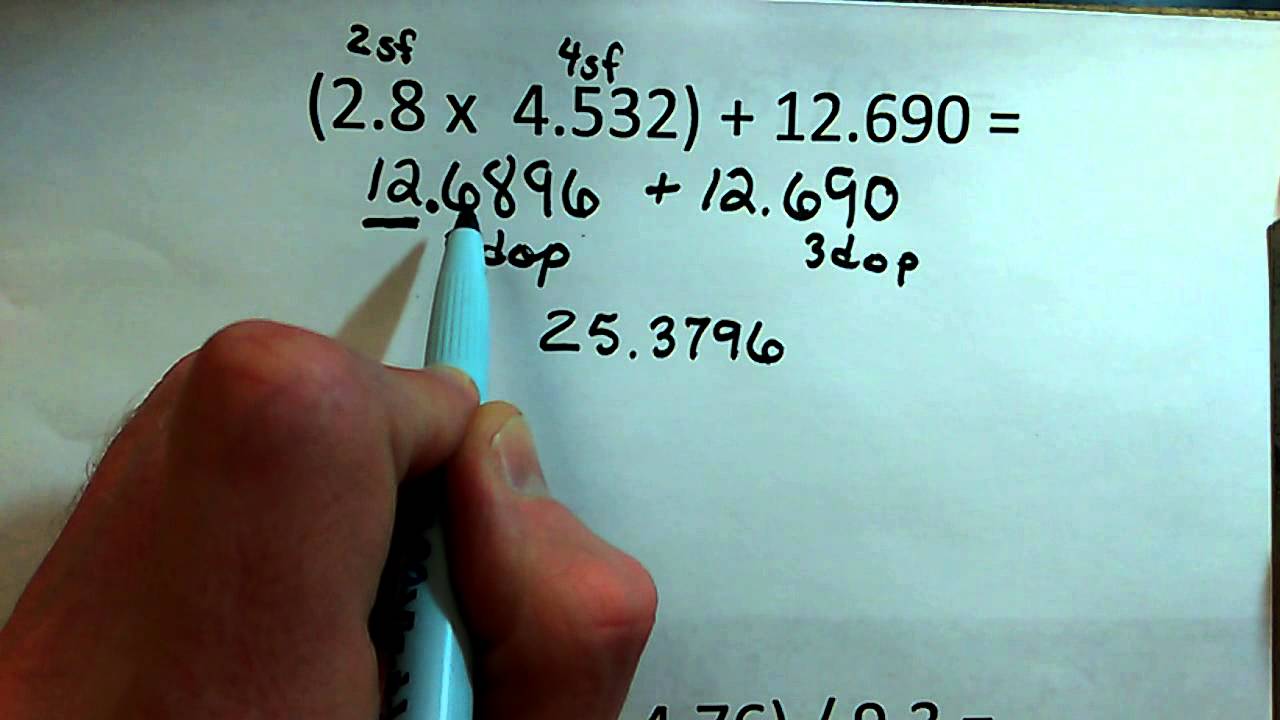 2sf 4sf
(2.8 x 4.532) + 12.690 =
12.6896 + 12.690
dop 3dop
25.3796
4.76) / 9.2 =